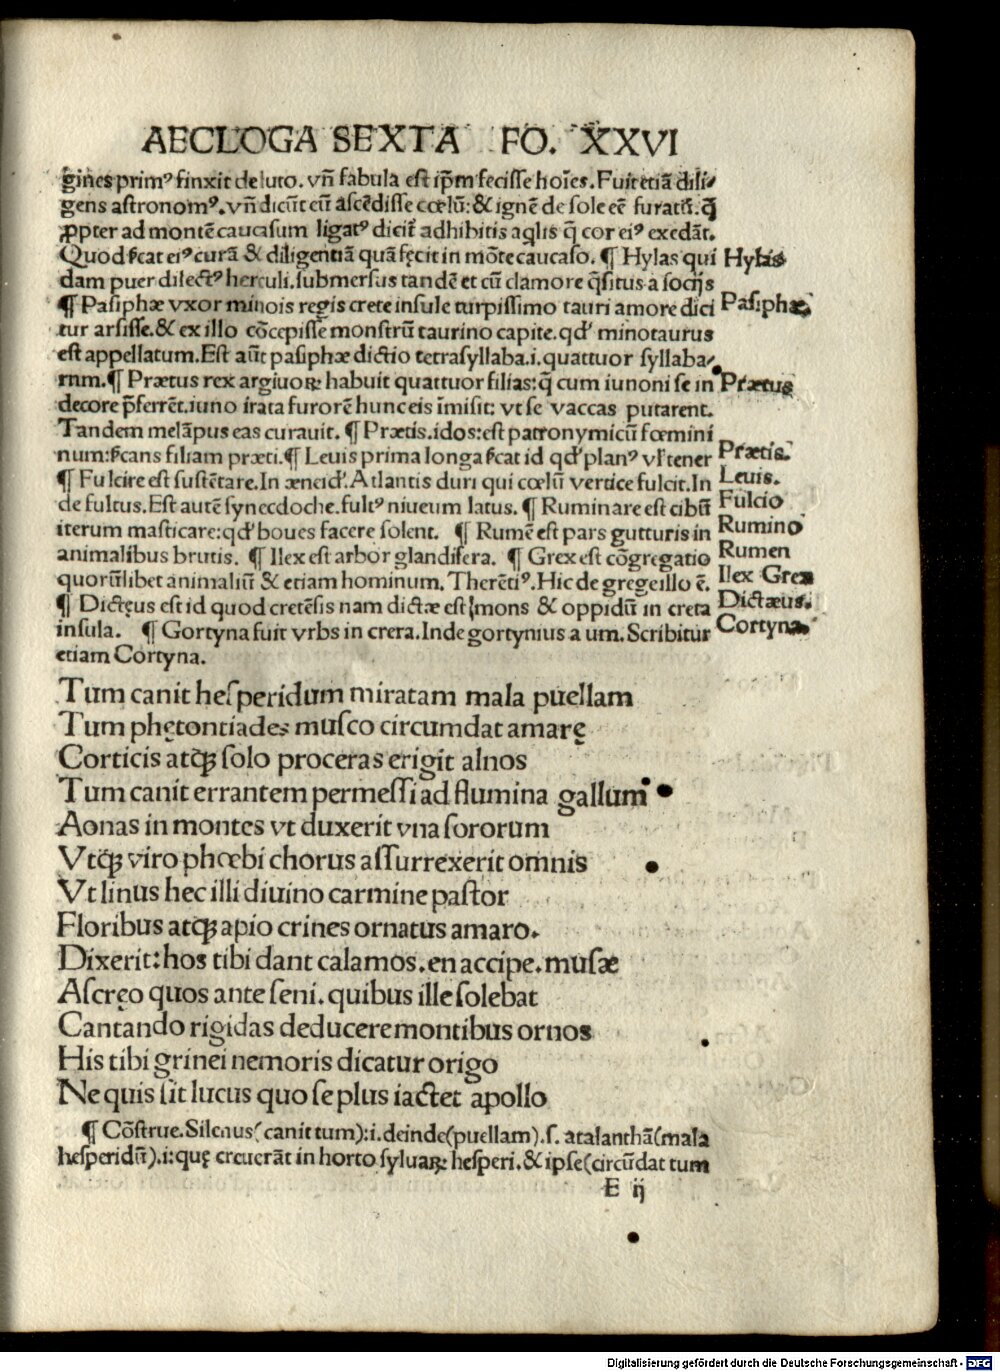 AECLOGA SEXTA FO. XXVI
gines primꝰ finxit de luto. vñ fabula est ip̄m fecisse hoīes. Fuit etiā dili⸗
gens astronomꝰ. vñ dicūt eū ascēdisse cœlū: & ignē de sole eē furatū. q̄
ꝓpter ad montē caucasum ligatꝰ dicit̃ adhibitis aq̇lis q̄ cor eiꝰ exedāt.
Quod s̄cat eiꝰ curā & diligentiā quā fęcit in mōte caucaso. ¶ Hylas qui Hylas
dam puer dilectꝰ herculi. submersus tandē et cū clamore q̄situs a socijs
¶ Pasiphæ vxor minois regis crete insule turpissimo tauri amore dici Pasiphæ
tur arsisse. & ex illo cōcepisse monstrū taurino capite. qd' minotaurus
est appellatum. Est aūt pasiphæ dictio tetrasyllaba. i. quattuor syllaba⸗
rum. ¶ Prætus rex argiuoꝝ habuit quattuor filias: q̄ cum iunoni se in Prætus
decore p̄ferrēt. iuno irata furorē hunc eis īmisit: vt se vaccas putarent.
Tandem melāpus eas curauit. ¶ Prætis. idos: est patronymicū fœmini
num: s̄cans filiam præti. ¶ Leuis prima longa s̄cat id qd' planꝰ vl' tener Prætis.
¶ Fulcire est sustētare. In æneid'. Atlantis duri qui cœlū vertice fulcit. In Leuis.
de fultus. Est autē synecdoche. fultꝰ niueum latus. ¶ Ruminare est cibū Fulcio
iterum masticare: qd' boues facere solent. ¶ Rumē est pars gutturis in Rumino
animalibus brutis. ¶ Ilex est arbor glandifera. ¶ Grex est cōgregatio Rumen
quorūlibet animaliū & etiam hominum. Therētiꝰ. Hic de grege illo ē. Ilex Grex
¶ Dictęus est id quod cretēsis nam dictæ est mons & oppidū in creta Dictæus.
insula. ¶ Gortyna fuit vrbs in crera. Inde gortynius a um. Scribitur Cortyna
etiam Cortyna.
Tum canit hesperidum miratam mala puellam
Tum phętontiades musco circumdat amarę
Corticis atqꝫ solo proceras erigit alnos
Tum canit errantem permessi ad flumina gallum
Aonas in montes vt duxerit vna sororum
Vtqꝫ viro phœbi chorus assurrexerit omnis
Vt linus hec illi diuino carmine pastor
Floribus atqꝫ apio crines ornatus amaro.
Dixerit: hos tibi dant calamos. en accipe. musæ
Ascręo quos ante seni. quibus ille solebat
Cantando rigidas deducere montibus ornos
His tibi grinei nemoris dicatur origo
Ne quis sit lucus quo se plus iactet apollo
¶ Cōstrue. Silenus (canit tum): i. deinde (puellam). s. atalanthā (mala
hesperidū). i: quę creuerāt in horto syluaꝝ hesperi. & ipse (circūdat tum
E ij
Digitalisierung gefördert durch die Deutsche Forschungsgemeinschaft - DFG